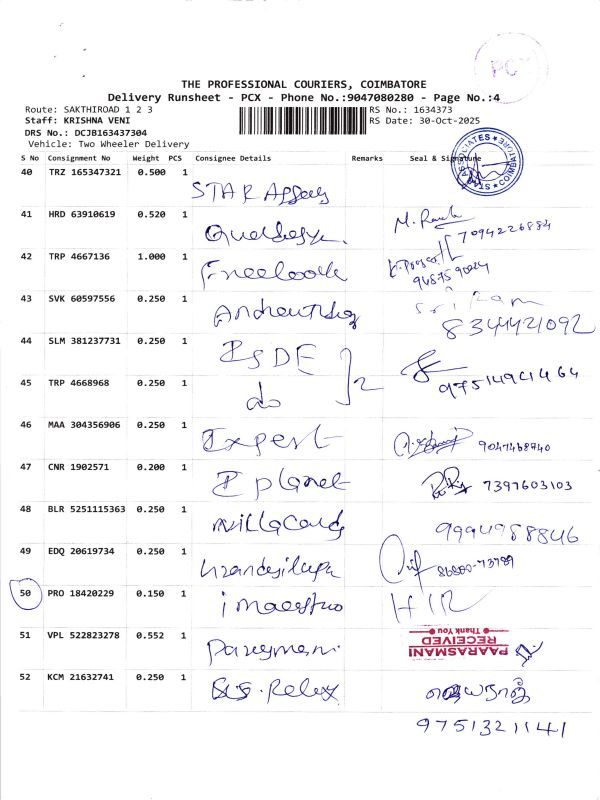 PCX
THE PROFESSIONAL COURIERS, COIMBATORE
Delivery Runsheet - PCX - Phone No.:9047080280 - Page No.:4
Route: SAKTHIROAD 1 2 3 RS No.: 1634373
Staff: KRISHNA VENI RS Date: 30-Oct-2025
DRS No.: DCJB163437304
Vehicle: Two Wheeler Delivery
S No Consignment No Weight PCS Consignee Details Remarks Seal & Signature
ASSOCIATES COIMBATORE
40 TRZ 165347321 0.500 1 STAR
41 HRD 63910619 0.520 1 M. 7094226884
42 TRP 4667136 1.000 1 Freelook
43 SVK 60597556 0.250 1 Sri Ram 8344421092
44 SLM 381237731 0.250 1 ISDE
45 TRP 4668968 0.250 1 do 2 97514941464
46 MAA 304356906 0.250 1 Expert
47 CNR 1902571 0.200 1 I planet 7397603103
48 BLR 5251115363 0.250 1 9994988846
49 EDQ 20619734 0.250 1
50 PRO 18420229 0.150 1 imaestro
51 VPL 522823278 0.552 1 PAARASMANI RECEIVED Thank You
52 KCM 21632741 0.250 1 Relex
9751321141